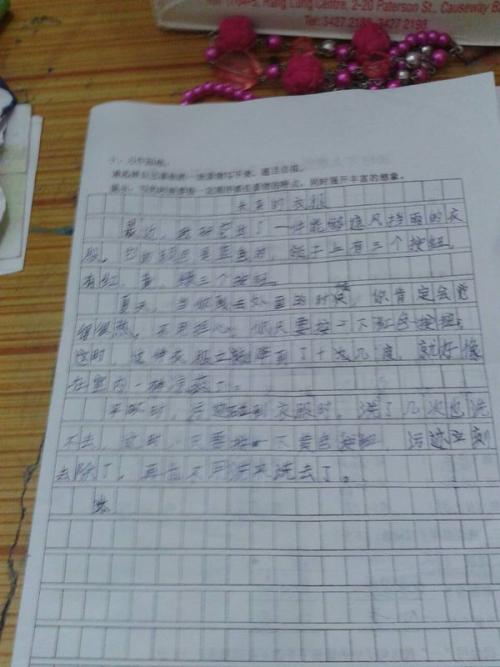 Hang Lung Centre, 2-20 Paterson St., Causeway B
Tel: 3427 2188, 3427 2198
未来的衣服
最近，我研究出了一件能够遮风挡雨的衣
服。它的颜色是蓝色的，领子上有三个按钮。
有红、黄、绿三个按钮。
夏天，当你要去外面的时候，你肯定会觉
得很热。不用担心，你只要按一下红色按钮。
这时，这件衣服立刻降到了十几度，就好像
在室内一样凉爽了。
平时，污迹粘到衣服时，洗了几次也洗
不去，这时，只要按一下黄色按钮，污迹立刻
去除了，再也不用洗来洗去了。